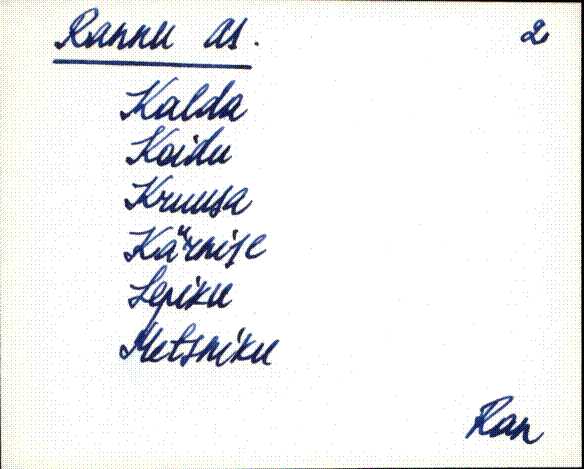 Rannu as. 2
Kalda
Koidu
Kruusa
Kärnise
Lepiku
Metsniku
Ran